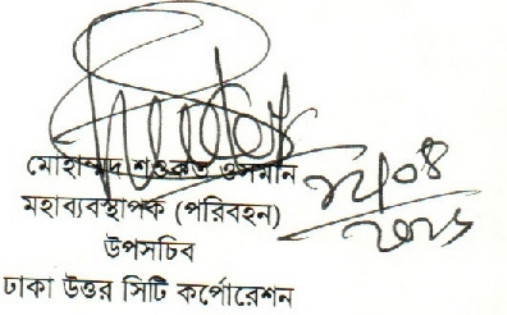 মোহাম্মদ শওকত ওসমান
মহাব্যবস্থাপক (পরিবহন)
উপসচিব
ঢাকা উত্তর সিটি কর্পোরেশন